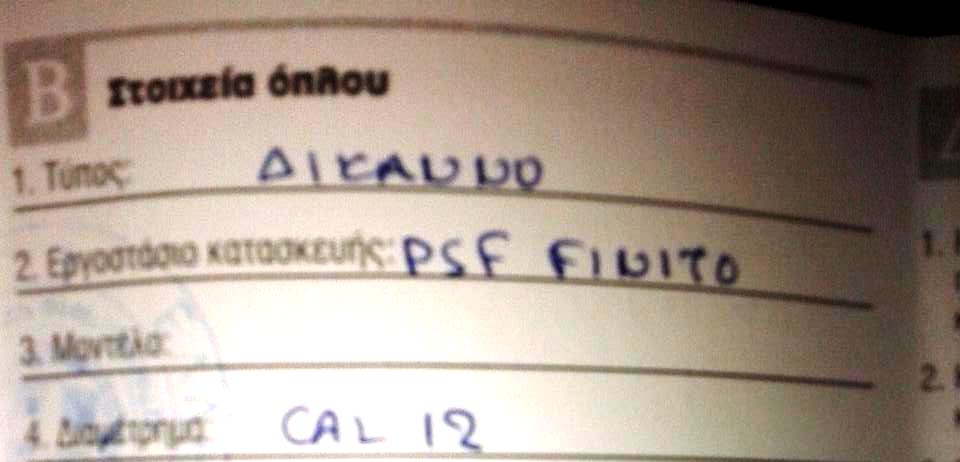 B Στοιχεία όπλου
1. Τύπος: ΔΙΚΑΝΝΟ
2. Εργοστάσιο κατασκευής: PSF FINITO
3. Μοντέλο:
4. Διαμέτρημα: CAL 12
1.
2.